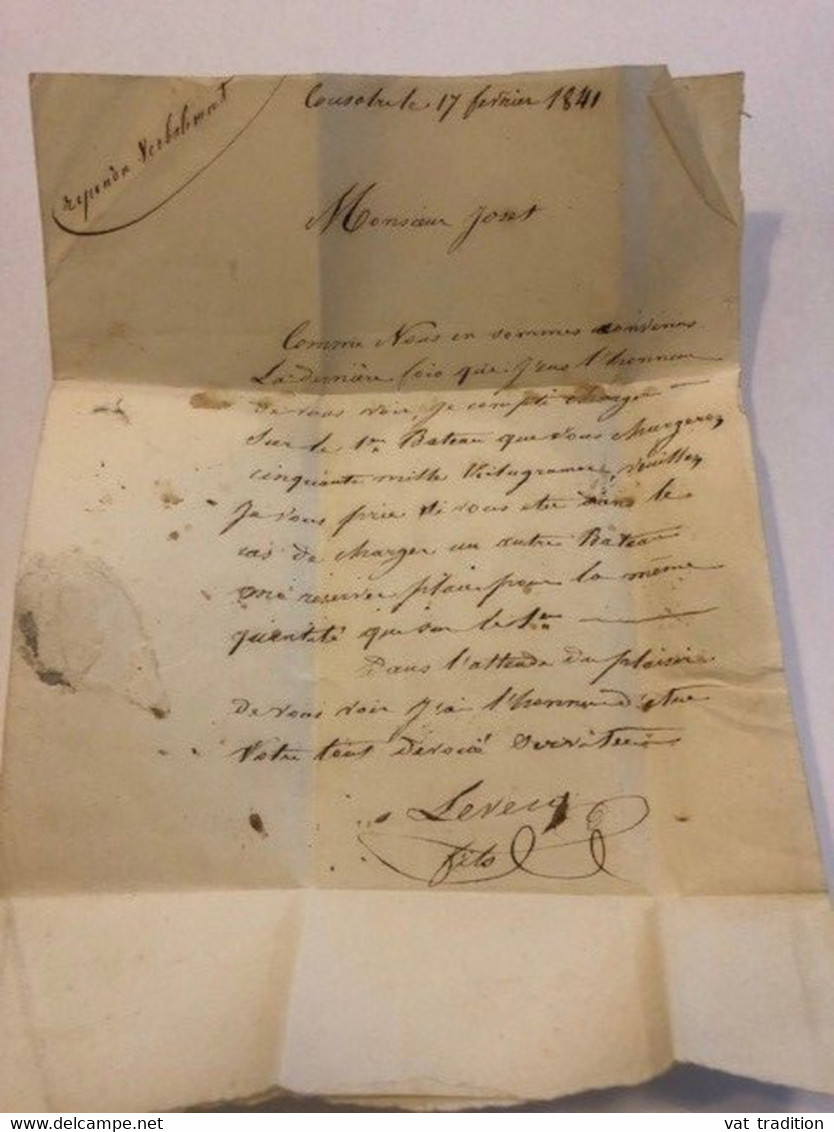 repondu Verbalement
Cousolre le 17 fevrier 1841
Monsieur Joset
Comme Nous en sommes convenus
La dernière fois que J'eus l'honneur
De vous voir, je compte charger
Sur le 1er Bateau que vous chargerez
cinquante mille Kilogrammes, veuillez
Je vous prie si vous etes dans le
cas de charger un autre Bateau
me réserver place pour la même
quantité que sur le 1er
Dans l'attende du plaisir
De vous voir J'ai l'honneur d'etre
Votre tout dévoué Serviteur
Levecq
fils
vat tradition